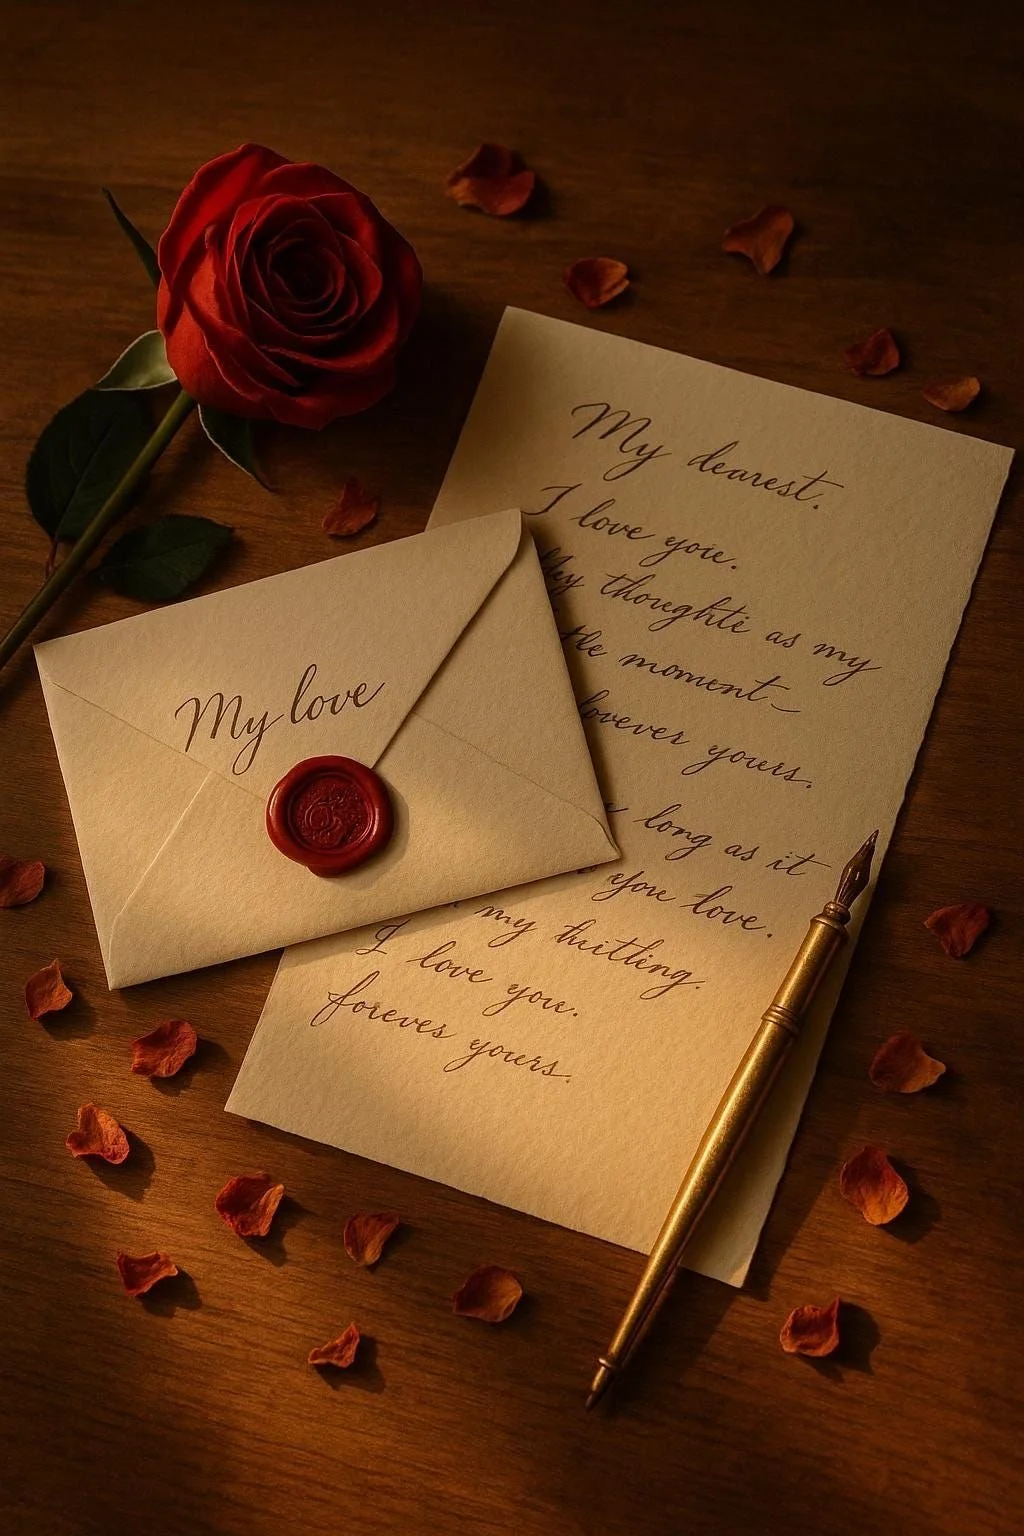 My love
My dearest.
I love you.
My thoughte as my
the moment—
lovever yours.
long as it
you love.
my tuitling.
I love you.
foreves yours.